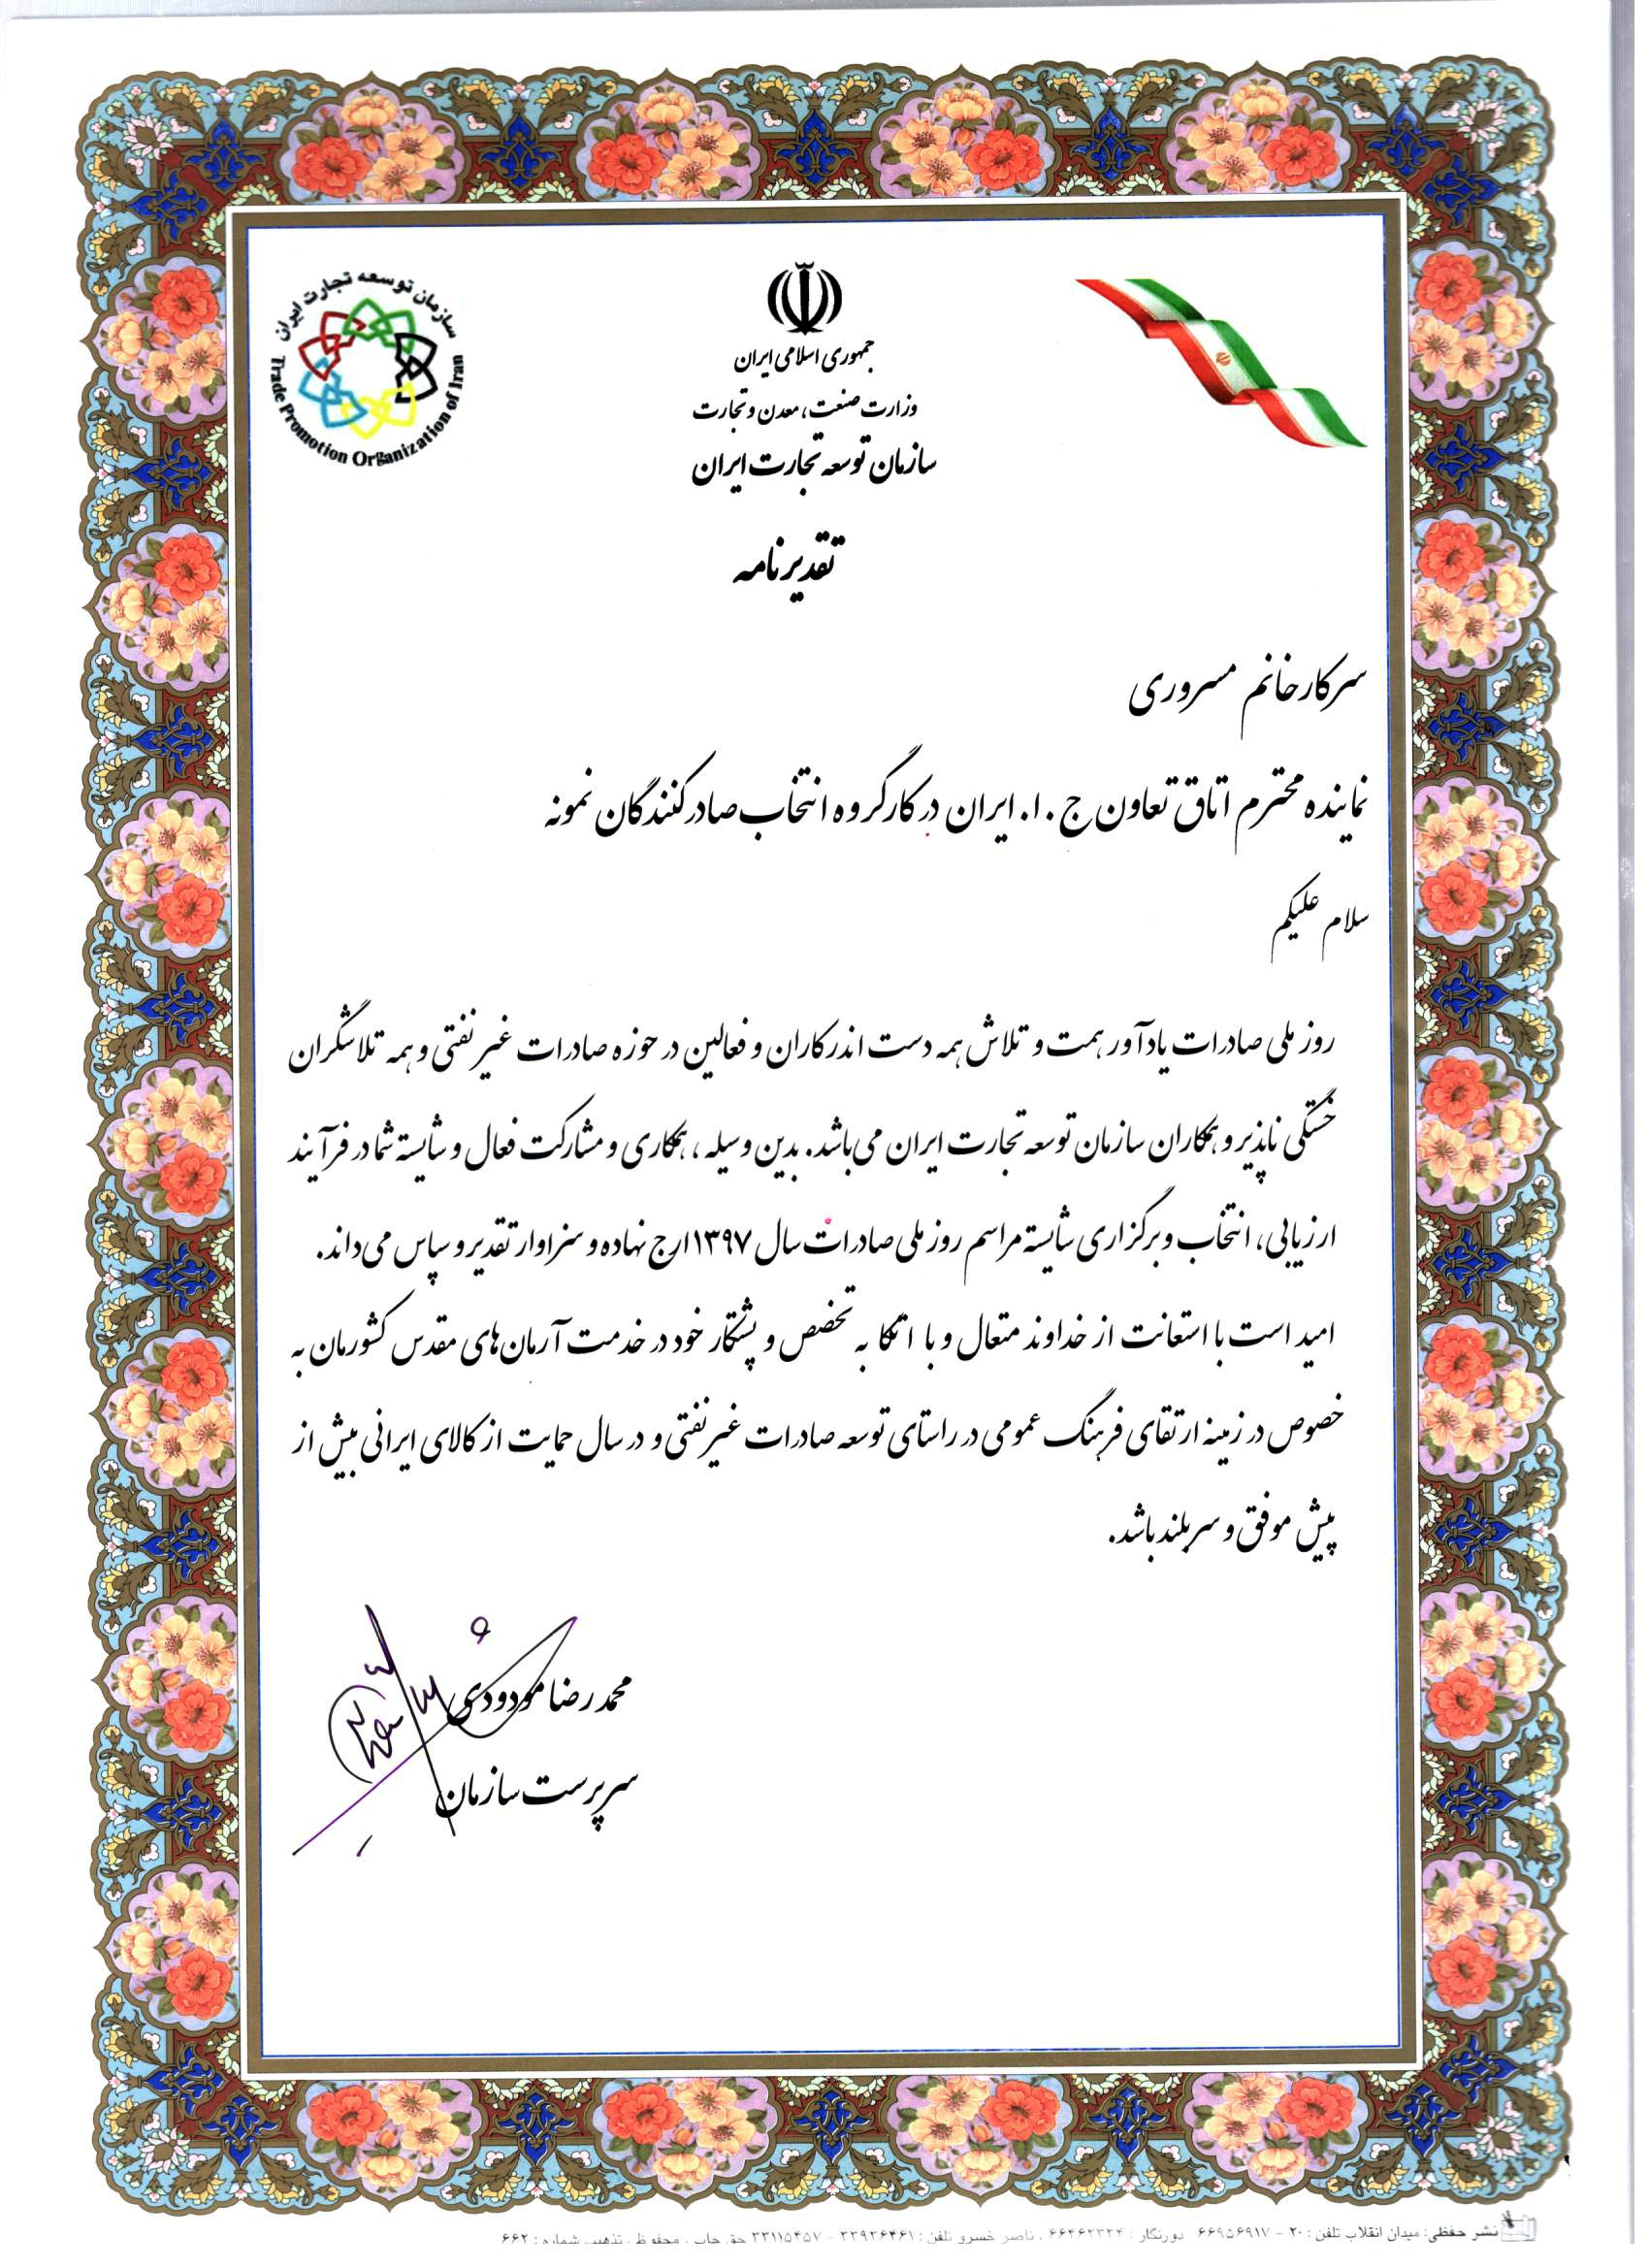 سازمان توسعه تجارت ایران
Trade Promotion Organization of Iran
جمهوری اسلامی ایران
وزارت صنعت، معدن و تجارت
سازمان توسعه تجارت ایران
تقدیرنامه
سرکارخانم مسروری
نماینده محترم اتاق تعاون ج.ا.ایران در کارگروه انتخاب صادرکنندگان نمونه
سلام علیکم
روز ملی صادرات یادآور همت و تلاش همه دست اندرکاران و فعالین در حوزه صادرات غیرنفتی و همه تلاشگران
خستگی ناپذیر و همکاران سازمان توسعه تجارت ایران می‌باشد. بدین وسیله، همکاری و مشارکت فعال و شایسته شما در فرآیند
ارزیابی، انتخاب و برگزاری شایسته مراسم روز ملی صادرات سال ۱۳۹۷ ارج نهاده و سزاوار تقدیر و سپاس می‌داند.
امید است با استعانت از خداوند متعال و با اتکا به تخصص و پشتکار خود در خدمت آرمان‌های مقدس کشورمان به
خصوص در زمینه ارتقای فرهنگ عمومی در راستای توسعه صادرات غیرنفتی و در سال حمایت از کالای ایرانی بیش از
پیش موفق و سربلند باشد.
محمدرضا مودودی
سرپرست سازمان
نشر حفظی: میدان انقلاب تلفن: ۲۰ - ۶۶۹۵۶۹۱۷ دورنگار: ۶۶۴۶۲۳۲۴ ، ناصر خسرو تلفن: ۳۳۹۳۶۴۶۱ - ۳۳۱۱۵۴۵۷ حق چاپ محفوظ تذهیب شماره: ۶۶۲